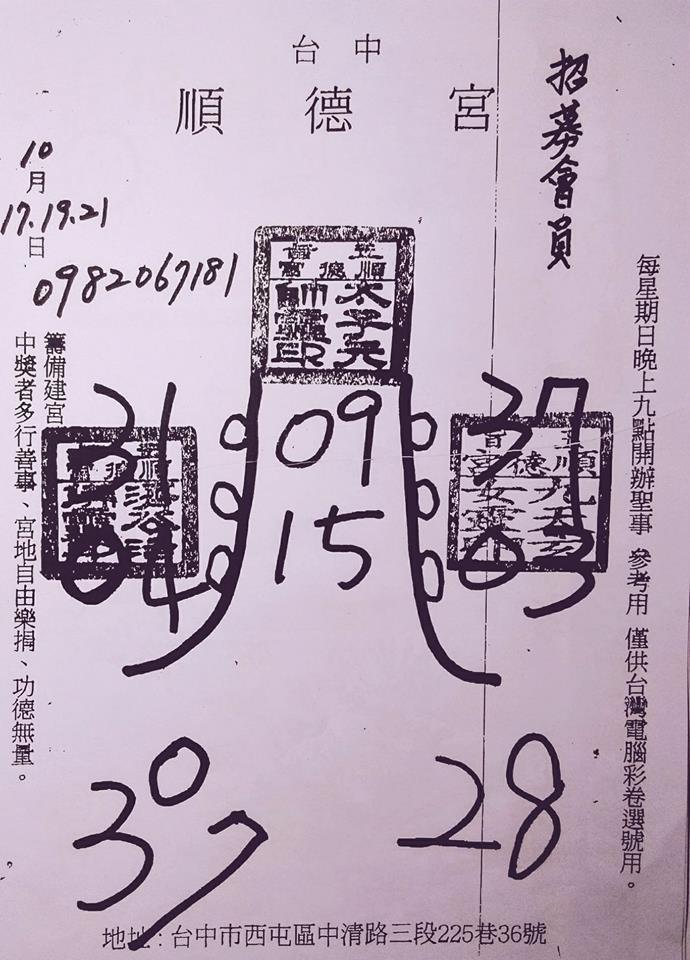 台中
順德宮
招募會員
10月
17.19.21日
0982067181
每星期日晚上九點開辦聖事 參考用 僅供台灣電腦彩卷選號用。
籌備建宮
中獎者多行善事、宮地自由樂捐、功德無量。
順德宮
太子元
帥靈印
31
09
37
04
15
03
順德宮
307
28
地址：台中市西屯區中清路三段225巷36號